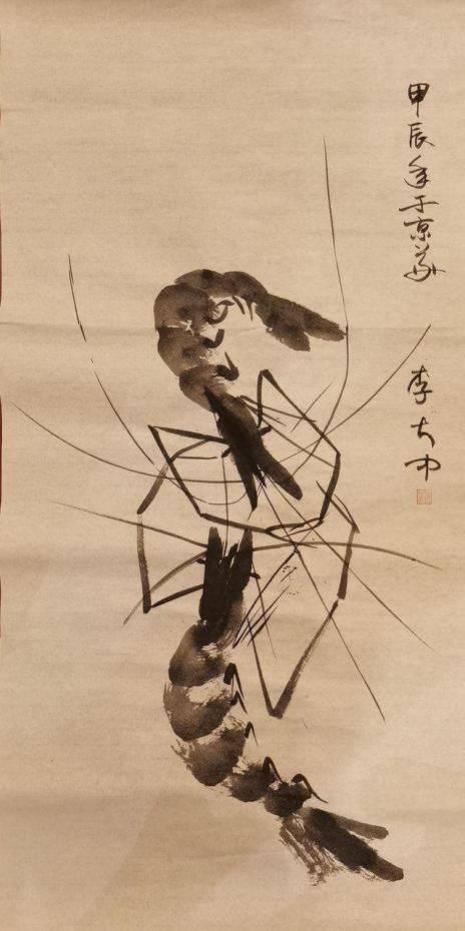 甲辰年于京華
李大中